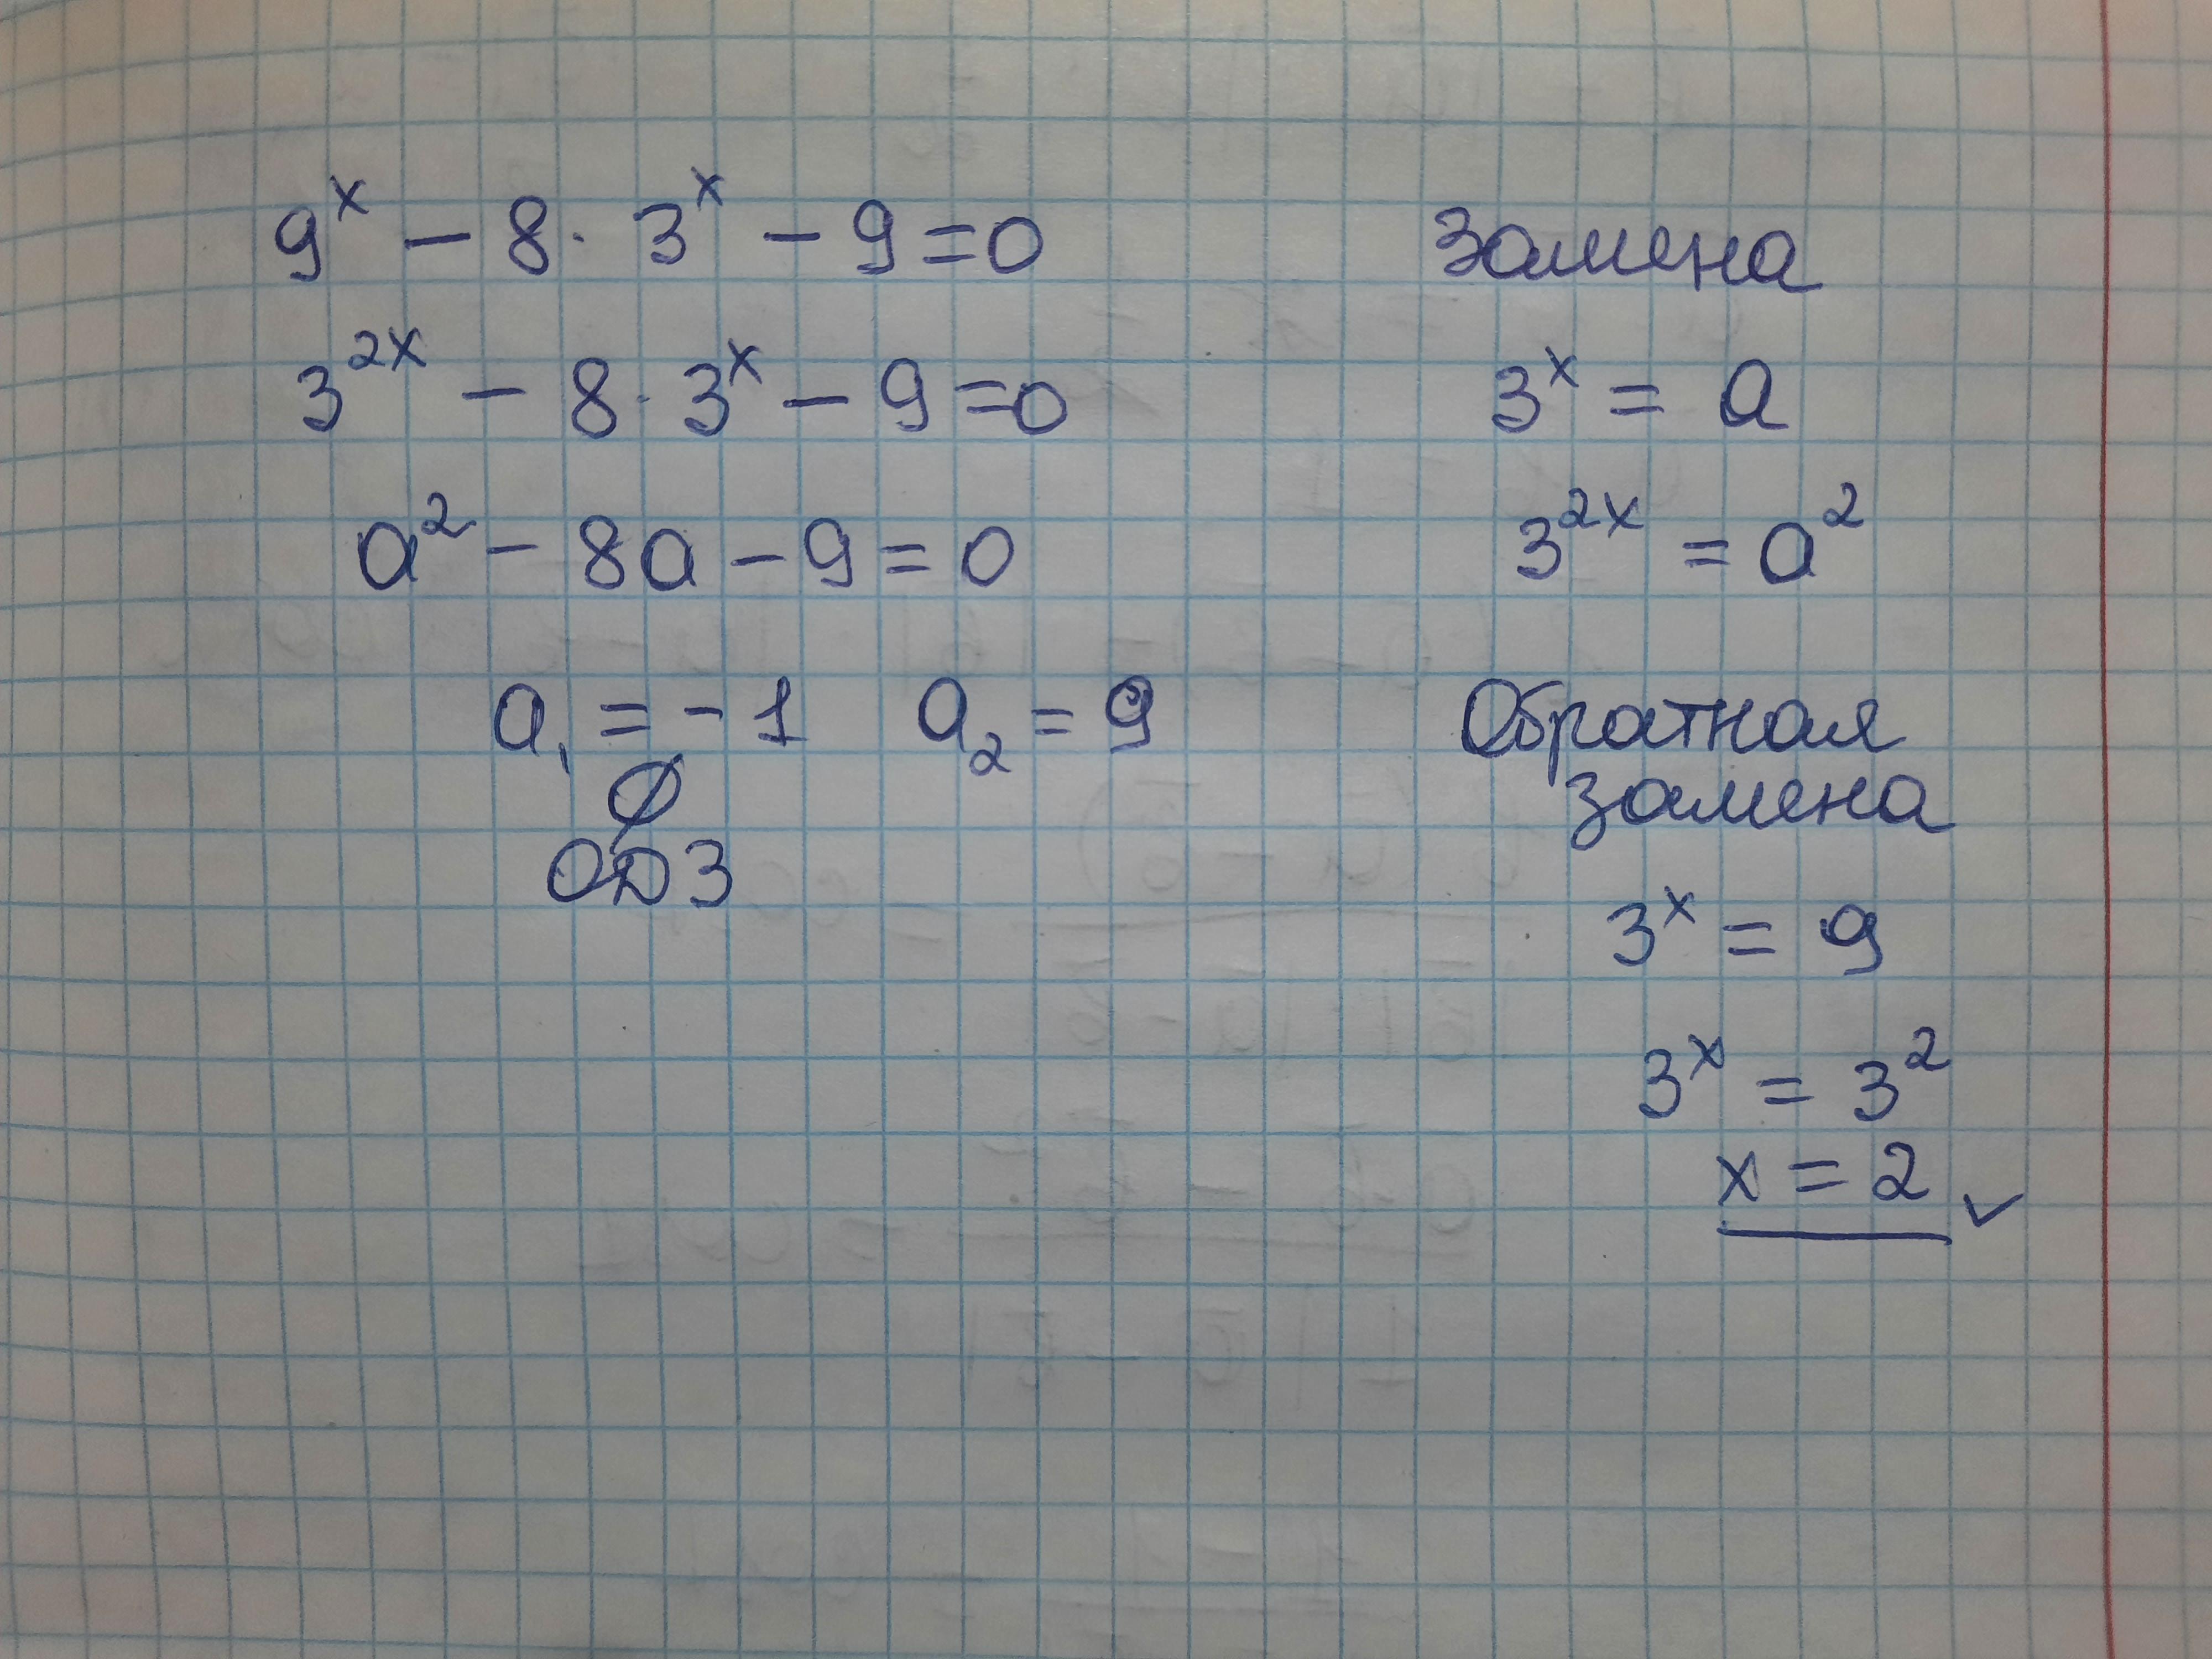 9ˣ − 8 · 3ˣ − 9 = 0
3²ˣ − 8 · 3ˣ − 9 = 0
a² − 8a − 9 = 0
a₁ = − 1 a₂ = 9
∅
ОДЗ
Замена
3ˣ = a
3²ˣ = a²
Обратная
замена
3ˣ = 9
3ˣ = 3²
x = 2 ✓